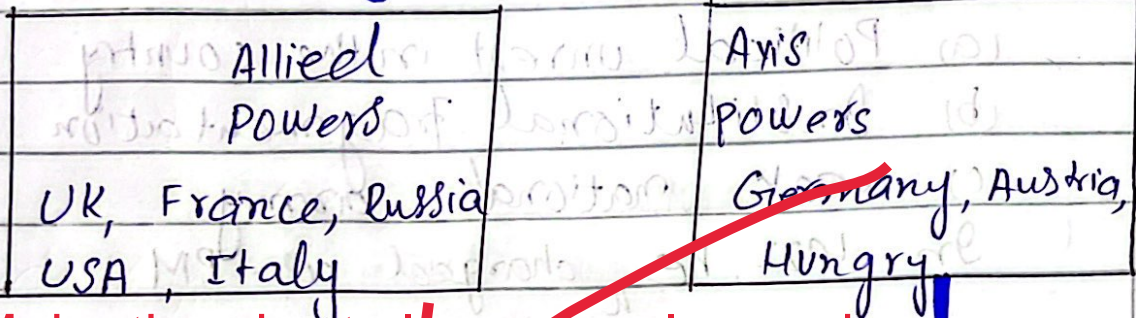 Allied
Powers
UK, France, Russia
USA, Italy
Axis
Powers
Germany, Austria,
Hungry